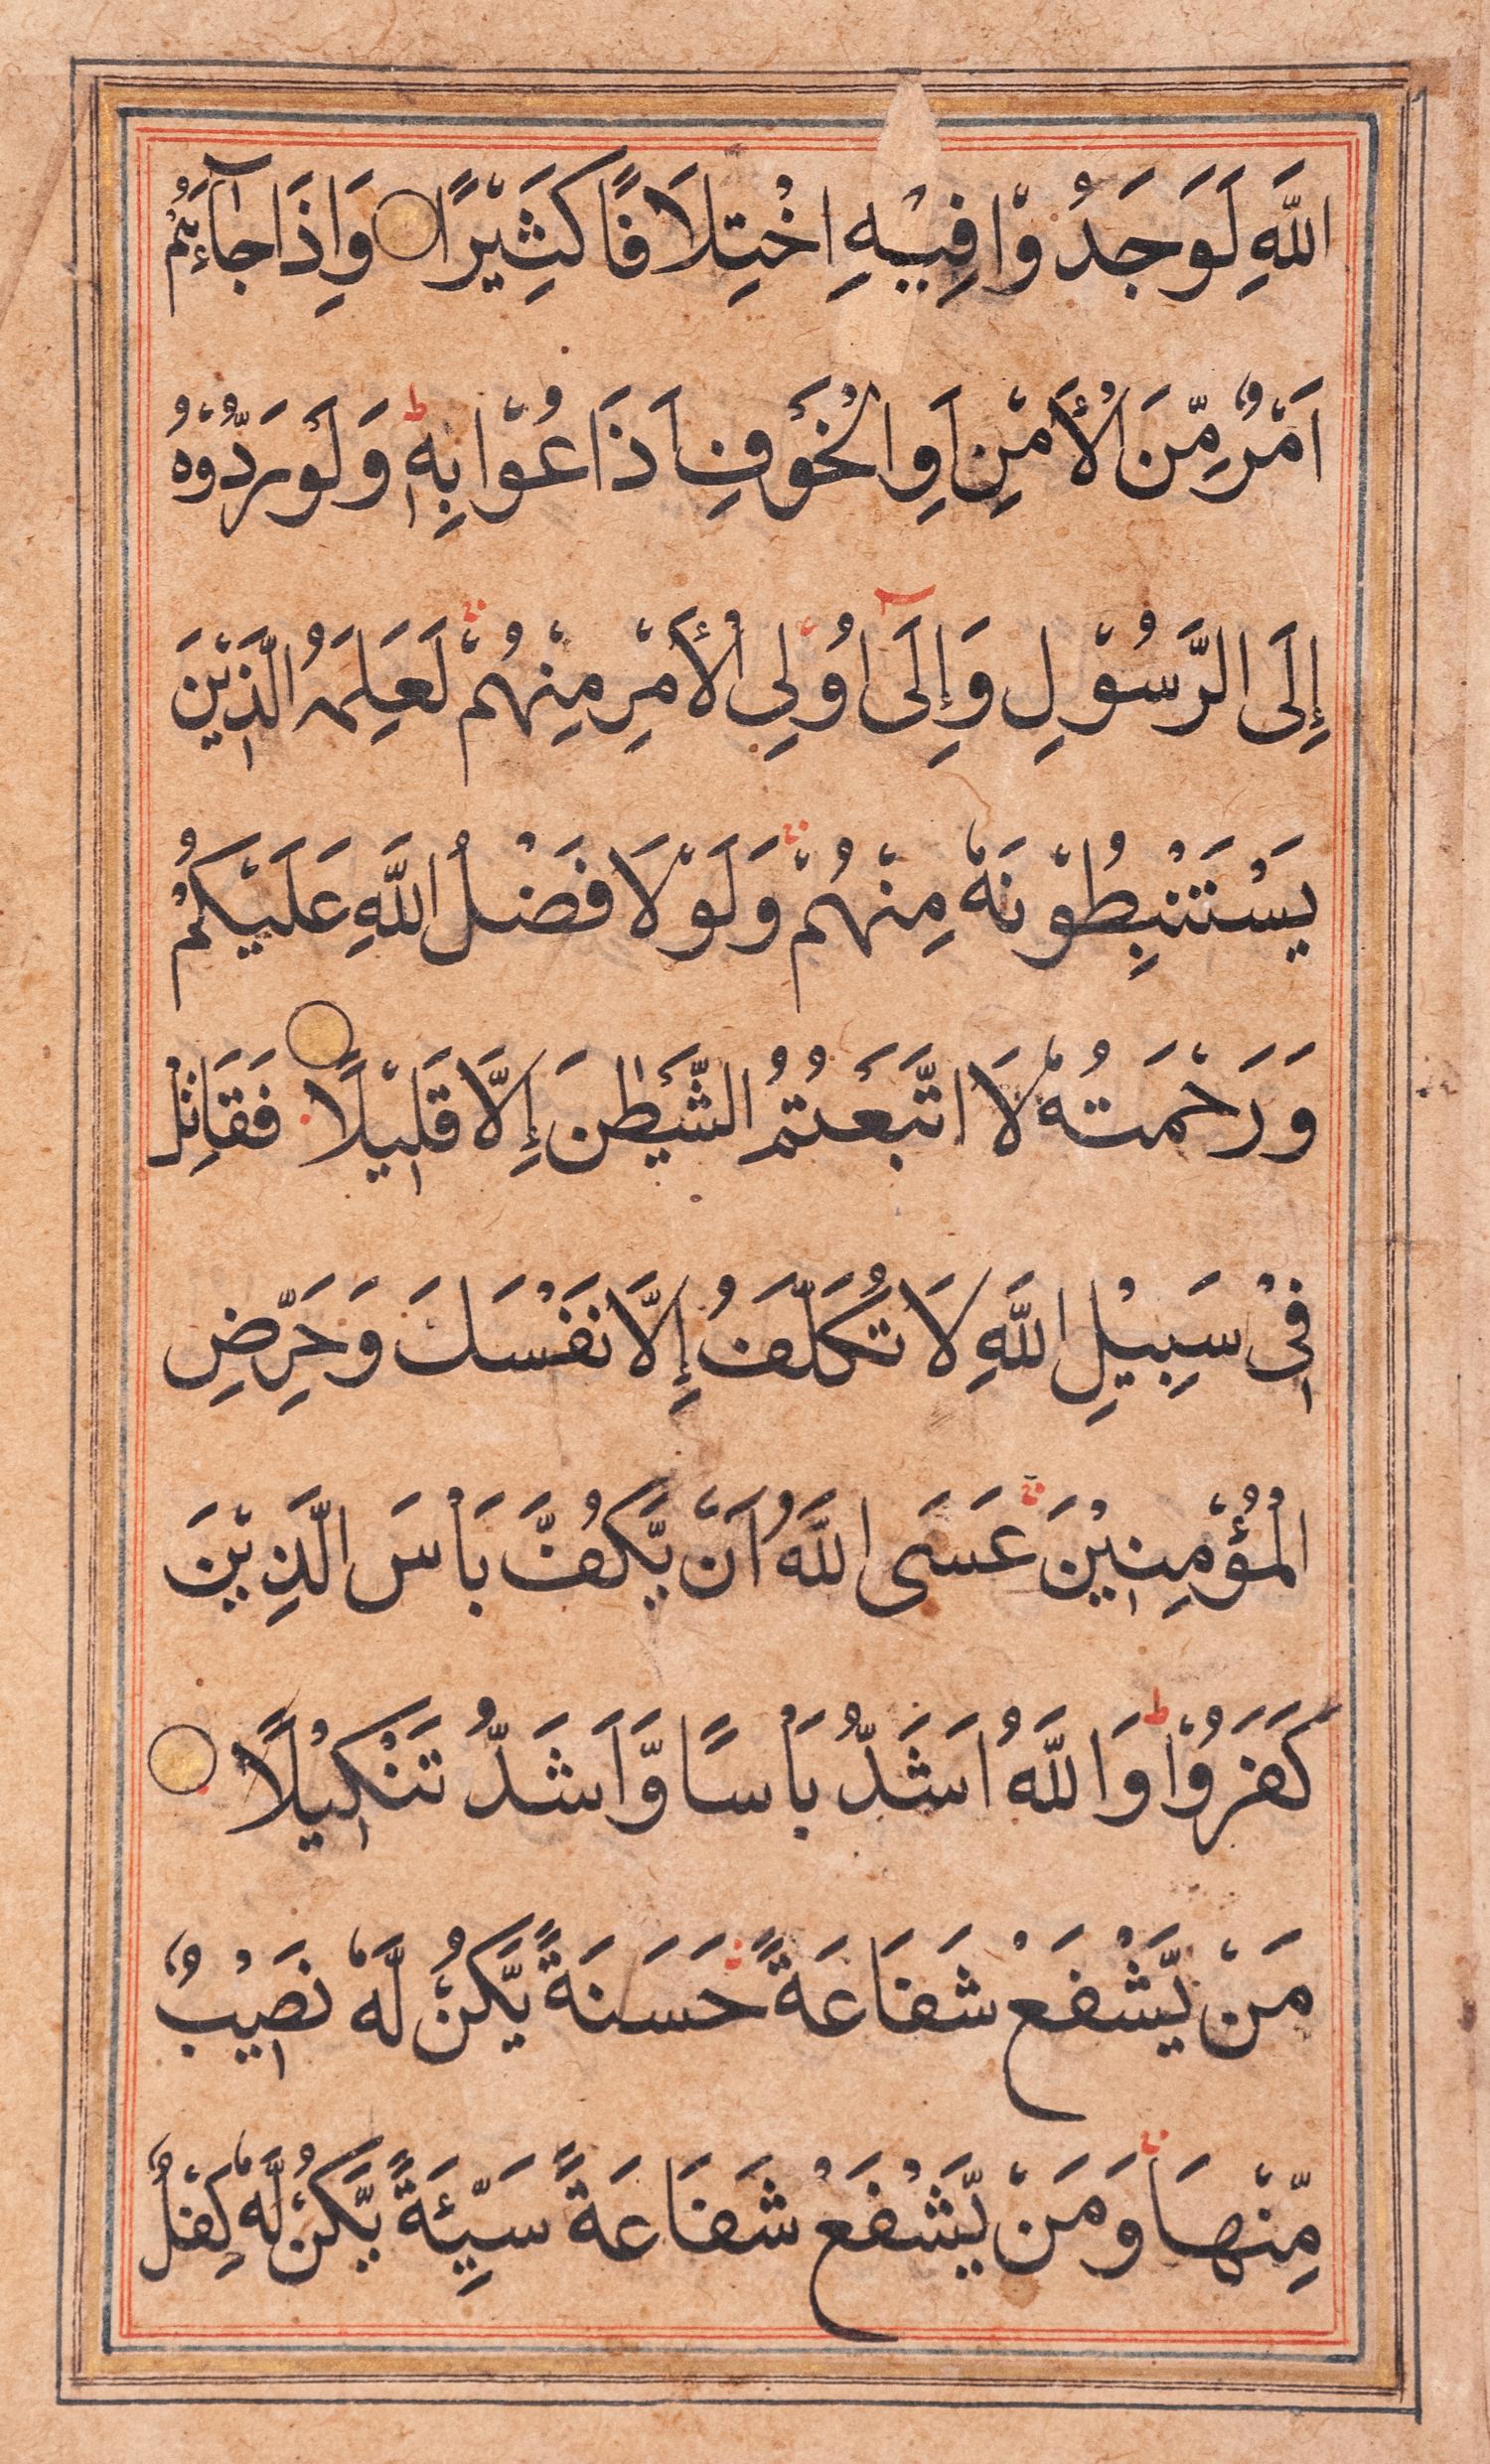 اللَّهِ لَوَجَدُوْا فِيْهِ اخْتِلَافًا كَثِيْرًا وَاِذَا جَآءَهُمْ
اَمْرٌ مِّنَ الْأَمْنِ اَوِ الْخَوْفِ اَذَاعُوْا بِهٖ ط وَلَوْ رَدُّوْهُ
إِلَى الرَّسُوْلِ وَإِلَىٓ اُولِى الْأَمْرِ مِنْهُمْ لَعَلِمَهُ الَّذِيْنَ
يَسْتَنْبِطُوْنَهٗ مِنْهُمْ وَلَوْ لَا فَضْلُ اللَّهِ عَلَيْكُمْ
وَرَحْمَتُهٗ لَا اتَّبَعْتُمُ الشَّيْطٰنَ إِلَّا قَلِيْلًا فَقَاتِلْ
فِيْ سَبِيْلِ اللَّهِ لَا تُكَلَّفُ إِلَّا نَفْسَكَ وَحَرِّضِ
الْمُؤْمِنِيْنَ عَسَى اللَّهُ اَنْ يَّكُفَّ بَأْسَ الَّذِيْنَ
كَفَرُوْا ط وَاللَّهُ اَشَدُّ بَأْسًا وَّاَشَدُّ تَنْكِيْلًا
مَنْ يَّشْفَعْ شَفَاعَةً حَسَنَةً يَّكُنْ لَّهٗ نَصِيْبٌ
مِّنْهَا وَمَنْ يَّشْفَعْ شَفَاعَةً سَيِّئَةً يَّكُنْ لَّهٗ كِفْلٌ